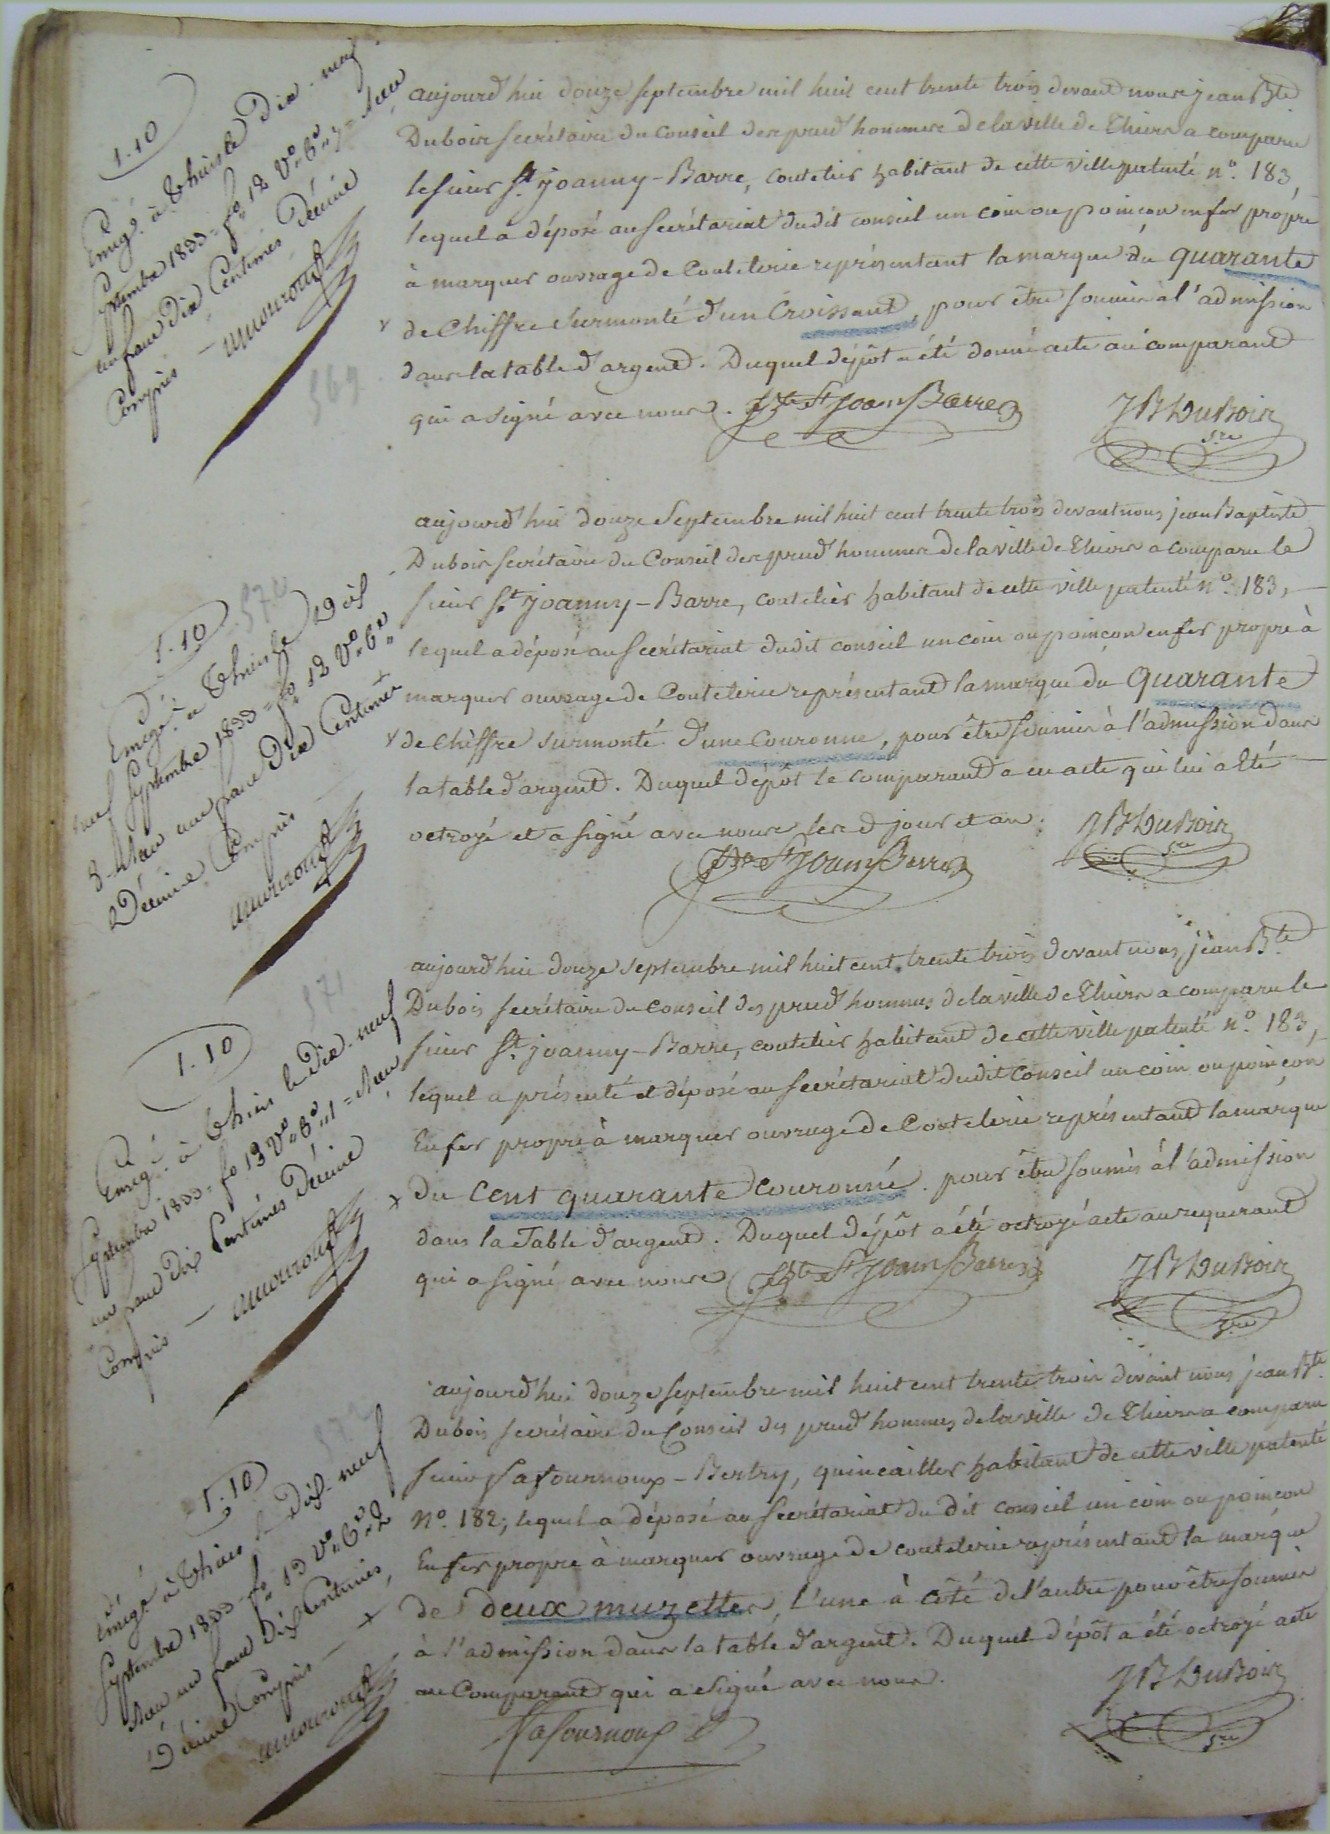 1.10
Enregé. à Thiers le Dix-neuf
Septembre 1833 = fo. 12 Vo. Co. 7 = Reçu
un franc Dix Centimes, Décime
Compris —
369
aujourd'hui douze septembre mil huit cent trente trois devant nous jean Bte
Dubois secrétaire du Conseil des prud'hommes de la ville de Thiers a comparu
le sieur St. joanny-Barre, coutelier habitant de cette ville patenté no. 183,
lequel a déposé au secrétariat dudit conseil un coin ou poinçon en fer propre
à marquer ouvrage de Coutelerie représentant la marque du quarante
de Chiffre surmonté d'un Croissant, pour être soumis à l'admission
dans la table d'argent. Duquel dépôt a été donné acte au comparant
qui a signé avec nous. Bte St Joany Barre JB DuBois
Sre
370
1.10
Enregé. à Thiers le Dix
neuf Septembre 1833 = fo. 12 Vo. Co.
8 = Reçu un franc Dix Centimes
Décime Compris —
aujourd'hui douze Septembre mil huit cent trente trois devant nous jean Baptiste
Dubois secrétaire du Conseil des prud'hommes de la ville de Thiers a comparu le
sieur St. Joanny-Barre, coutelier habitant de cette ville patenté no. 183, —
lequel a déposé au secrétariat dudit conseil un coin ou poinçon en fer propre à
marquer ouvrage de Coutelerie représentant la marque du quarante
de Chiffre surmonté d'une Couronne, pour être soumis à l'admission dans
la table d'argent. Duquel dépôt le comparant a eu acte qui lui a été —
octroyé et a signé avec nous les d jour et an. JB DuBois
Sre
Bte St Joany Barre
371
1.10
Enregé. à Thiers le Dix-neuf
Septembre 1833 = fo 13 Vo. Co. 1 = Reçu
un franc Dix Centimes Décime
Compris —
aujourd'hui douze septembre mil huit cent trente trois devant nous, jean Bte
Dubois secrétaire du conseil des prud'hommes de la ville de Thiers a comparu le
sieur St. joanny-Barre, coutelier habitant de cette ville patenté no. 183,
lequel a présenté et déposé au secrétariat dudit Conseil un coin ou poinçon
En fer propre à marquer ouvrage de Coutelerie représentant la marque
du Cent quarante couronné. pour être soumis à l'admission
dans la Table d'argent. Duquel dépôt a été octroyé acte au requerant
qui a signé avec nous Bte St Joany Barre JB DuBois
Sre
372
1.10
Enregé à Thiers le Dix-neuf
Septembre 1833 fo. 13 Vo. Co. 2
Reçu un franc Dix Centimes,
Décime Compris —
aujourd'hui douze septembre mil huit cent trente trois devant nous jean Bte.
Dubois secrétaire du Conseil des prud'hommes de la ville de Thiers a comparu
sieur Lafournoux-Bertry, quincailler habitant de cette ville patenté
No. 182; lequel a déposé au secrétariat du dit conseil un coin ou poinçon
En fer propre à marquer ouvrage de coutelerie représentant la marque
de deux muzettes, l'une à côté de l'autre pour être soumis
à l'admission dans la table d'argent. Duquel dépôt a été octroyé acte
au Comparant qui a signé avec nous. JB DuBois
Sre
Lafournoux B